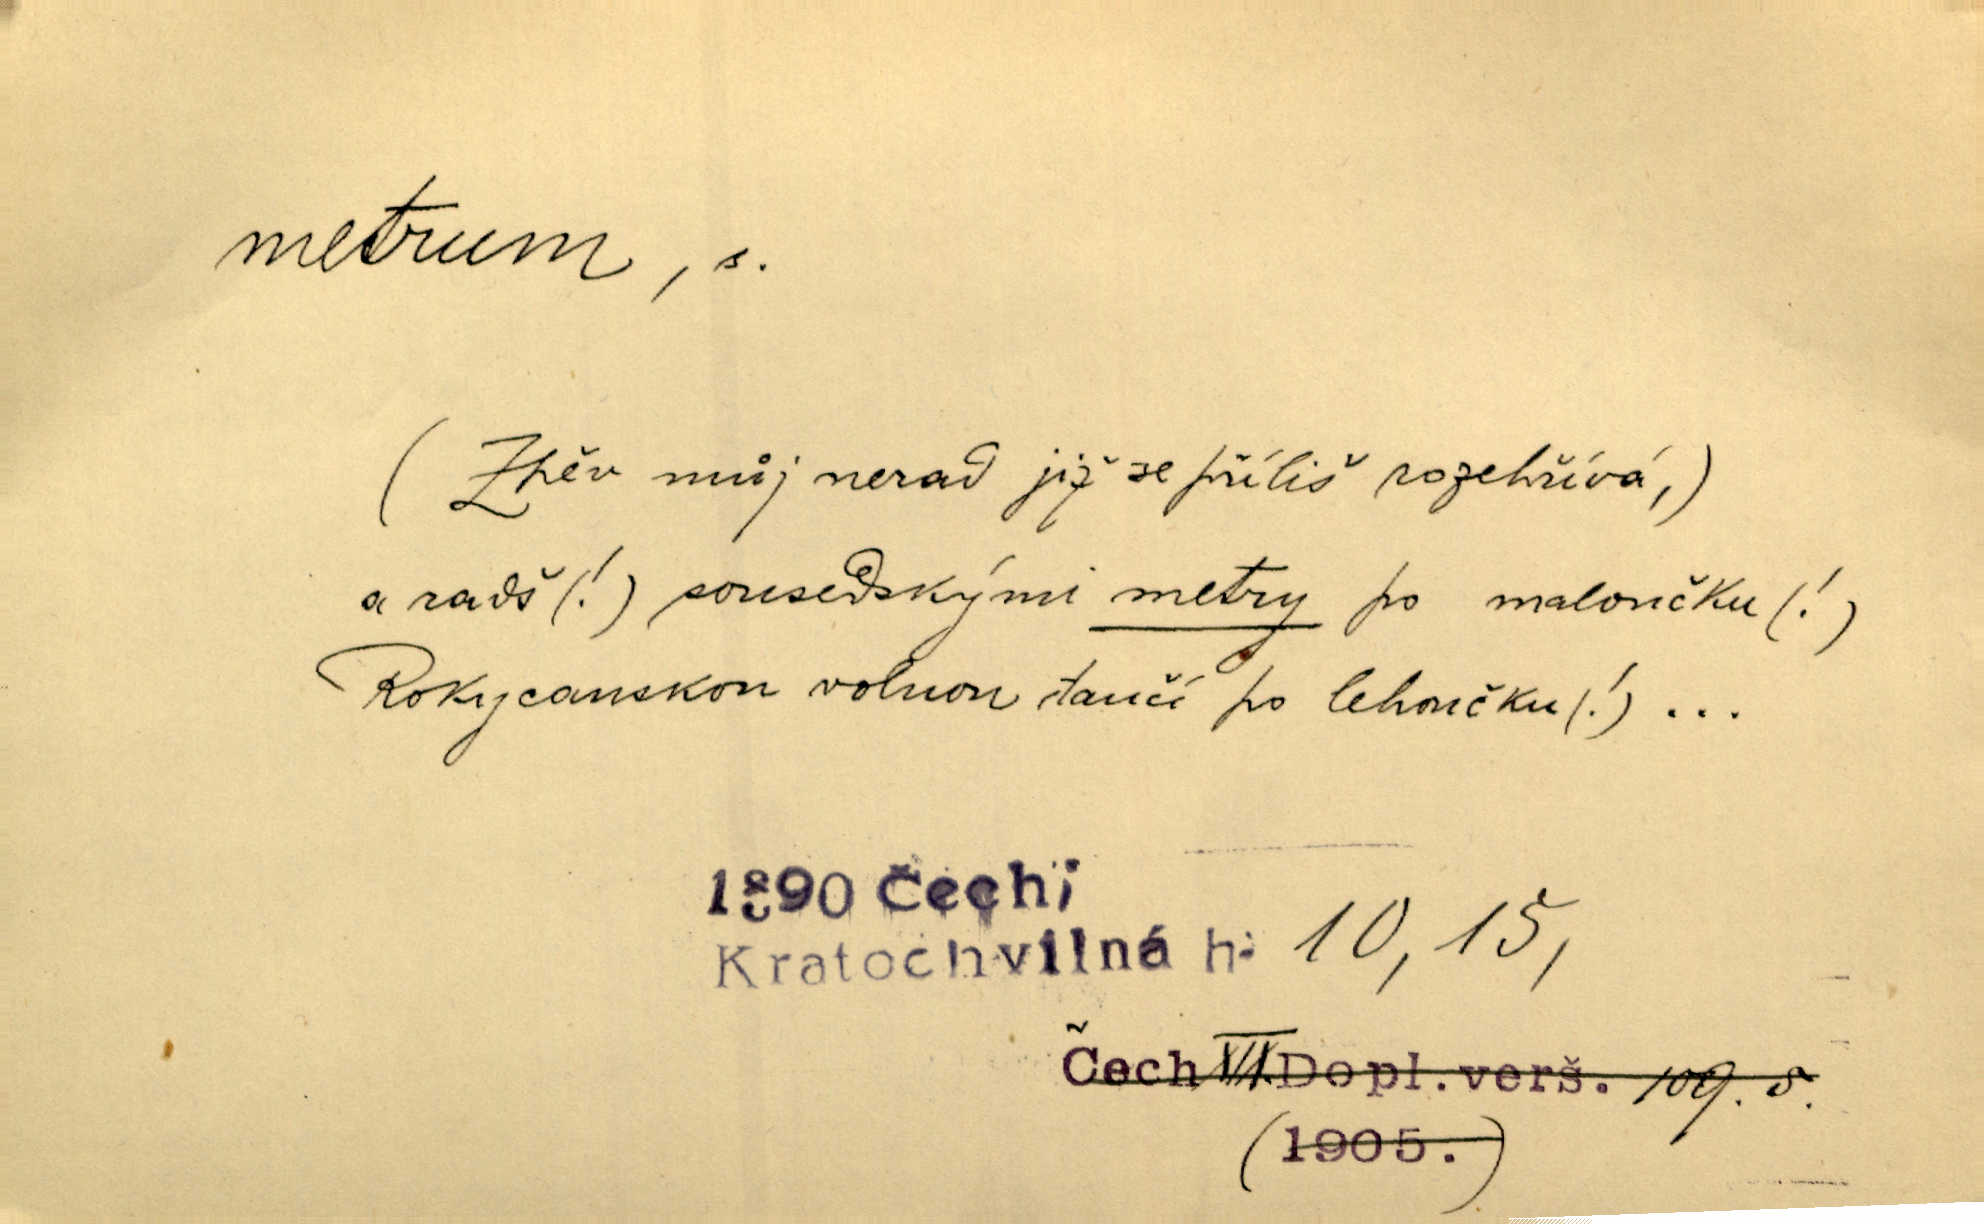 metrum, s.
(Zpěv můj nerad již se příliš rozehřívá,)
a radš(!) sousedskými metry po maloučku(!)
Rokycanskou volnou tančí po lehoučku(!) ...
1890 Čech i
Kratochvilná h. 10, 15,
Čech VII. Dopl. verš. 109. 5.
(1905.)